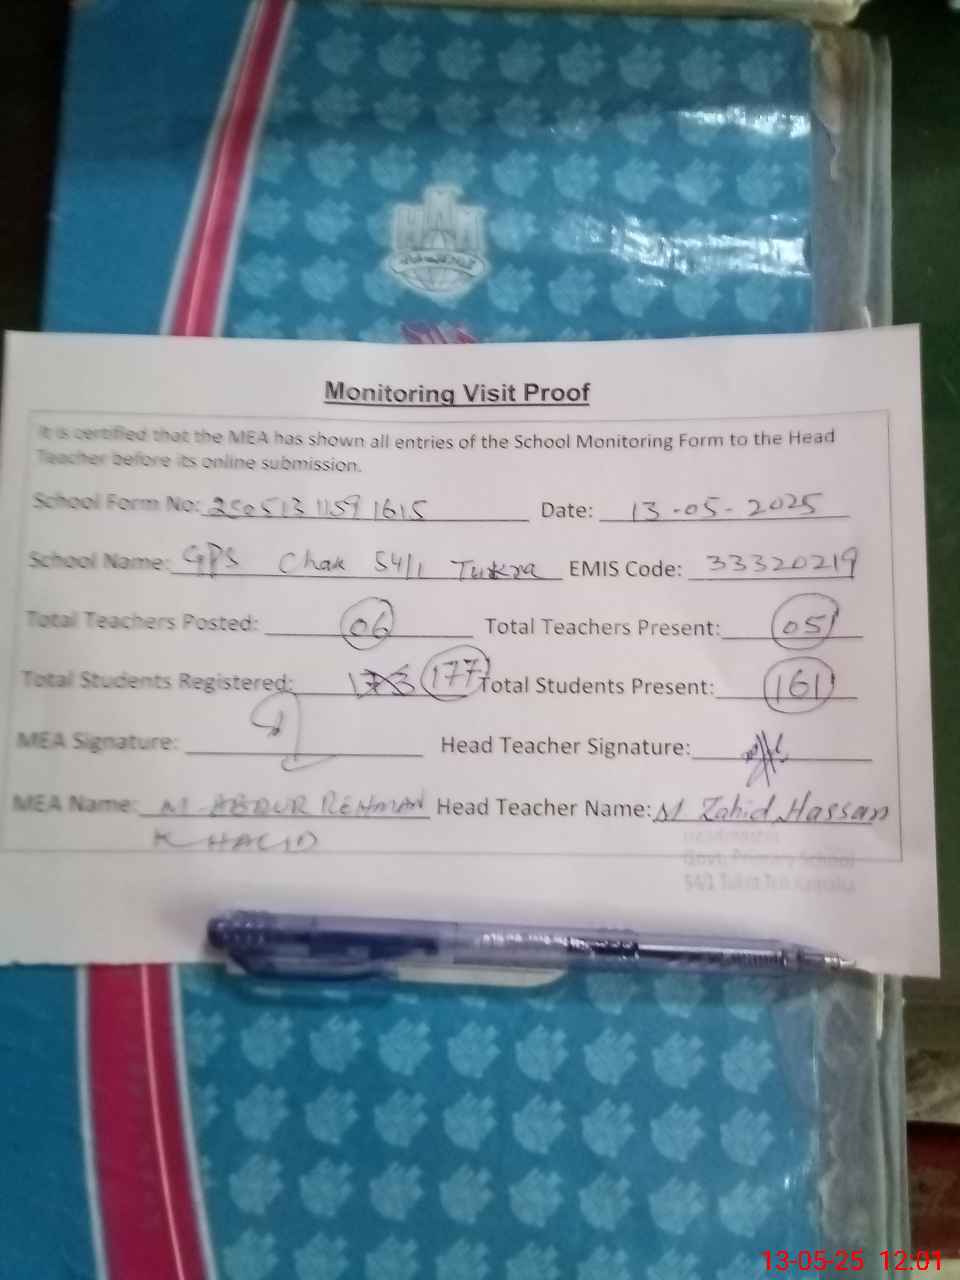 Monitoring Visit Proof
It is certified that the MEA has shown all entries of the School Monitoring Form to the Head
Teacher before its online submission.
School Form No: 250513 1159 1615 Date: 13-05-2025
School Name: GPS Chak 54/1 Tukra EMIS Code: 33320219
Total Teachers Posted: 06 Total Teachers Present: 05
Total Students Registered: 177 Total Students Present: 161
MEA Signature: Head Teacher Signature:
MEA Name: M ABDUR REHMAN Head Teacher Name: M Zahid Hassan
KHALID
Headmaster
Govt. Primary School
54/1
13-05-25 12:01